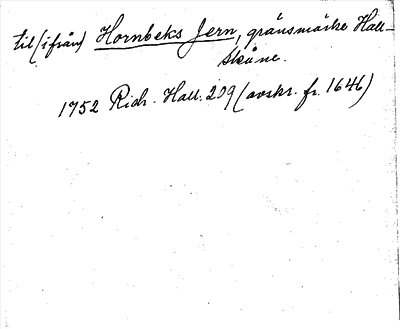 til (ifrån) Hornbeks Jern, gränsmärke Hall-
Skåne.
1752 Rich. Hall. 209 (avskr. fr. 1646)